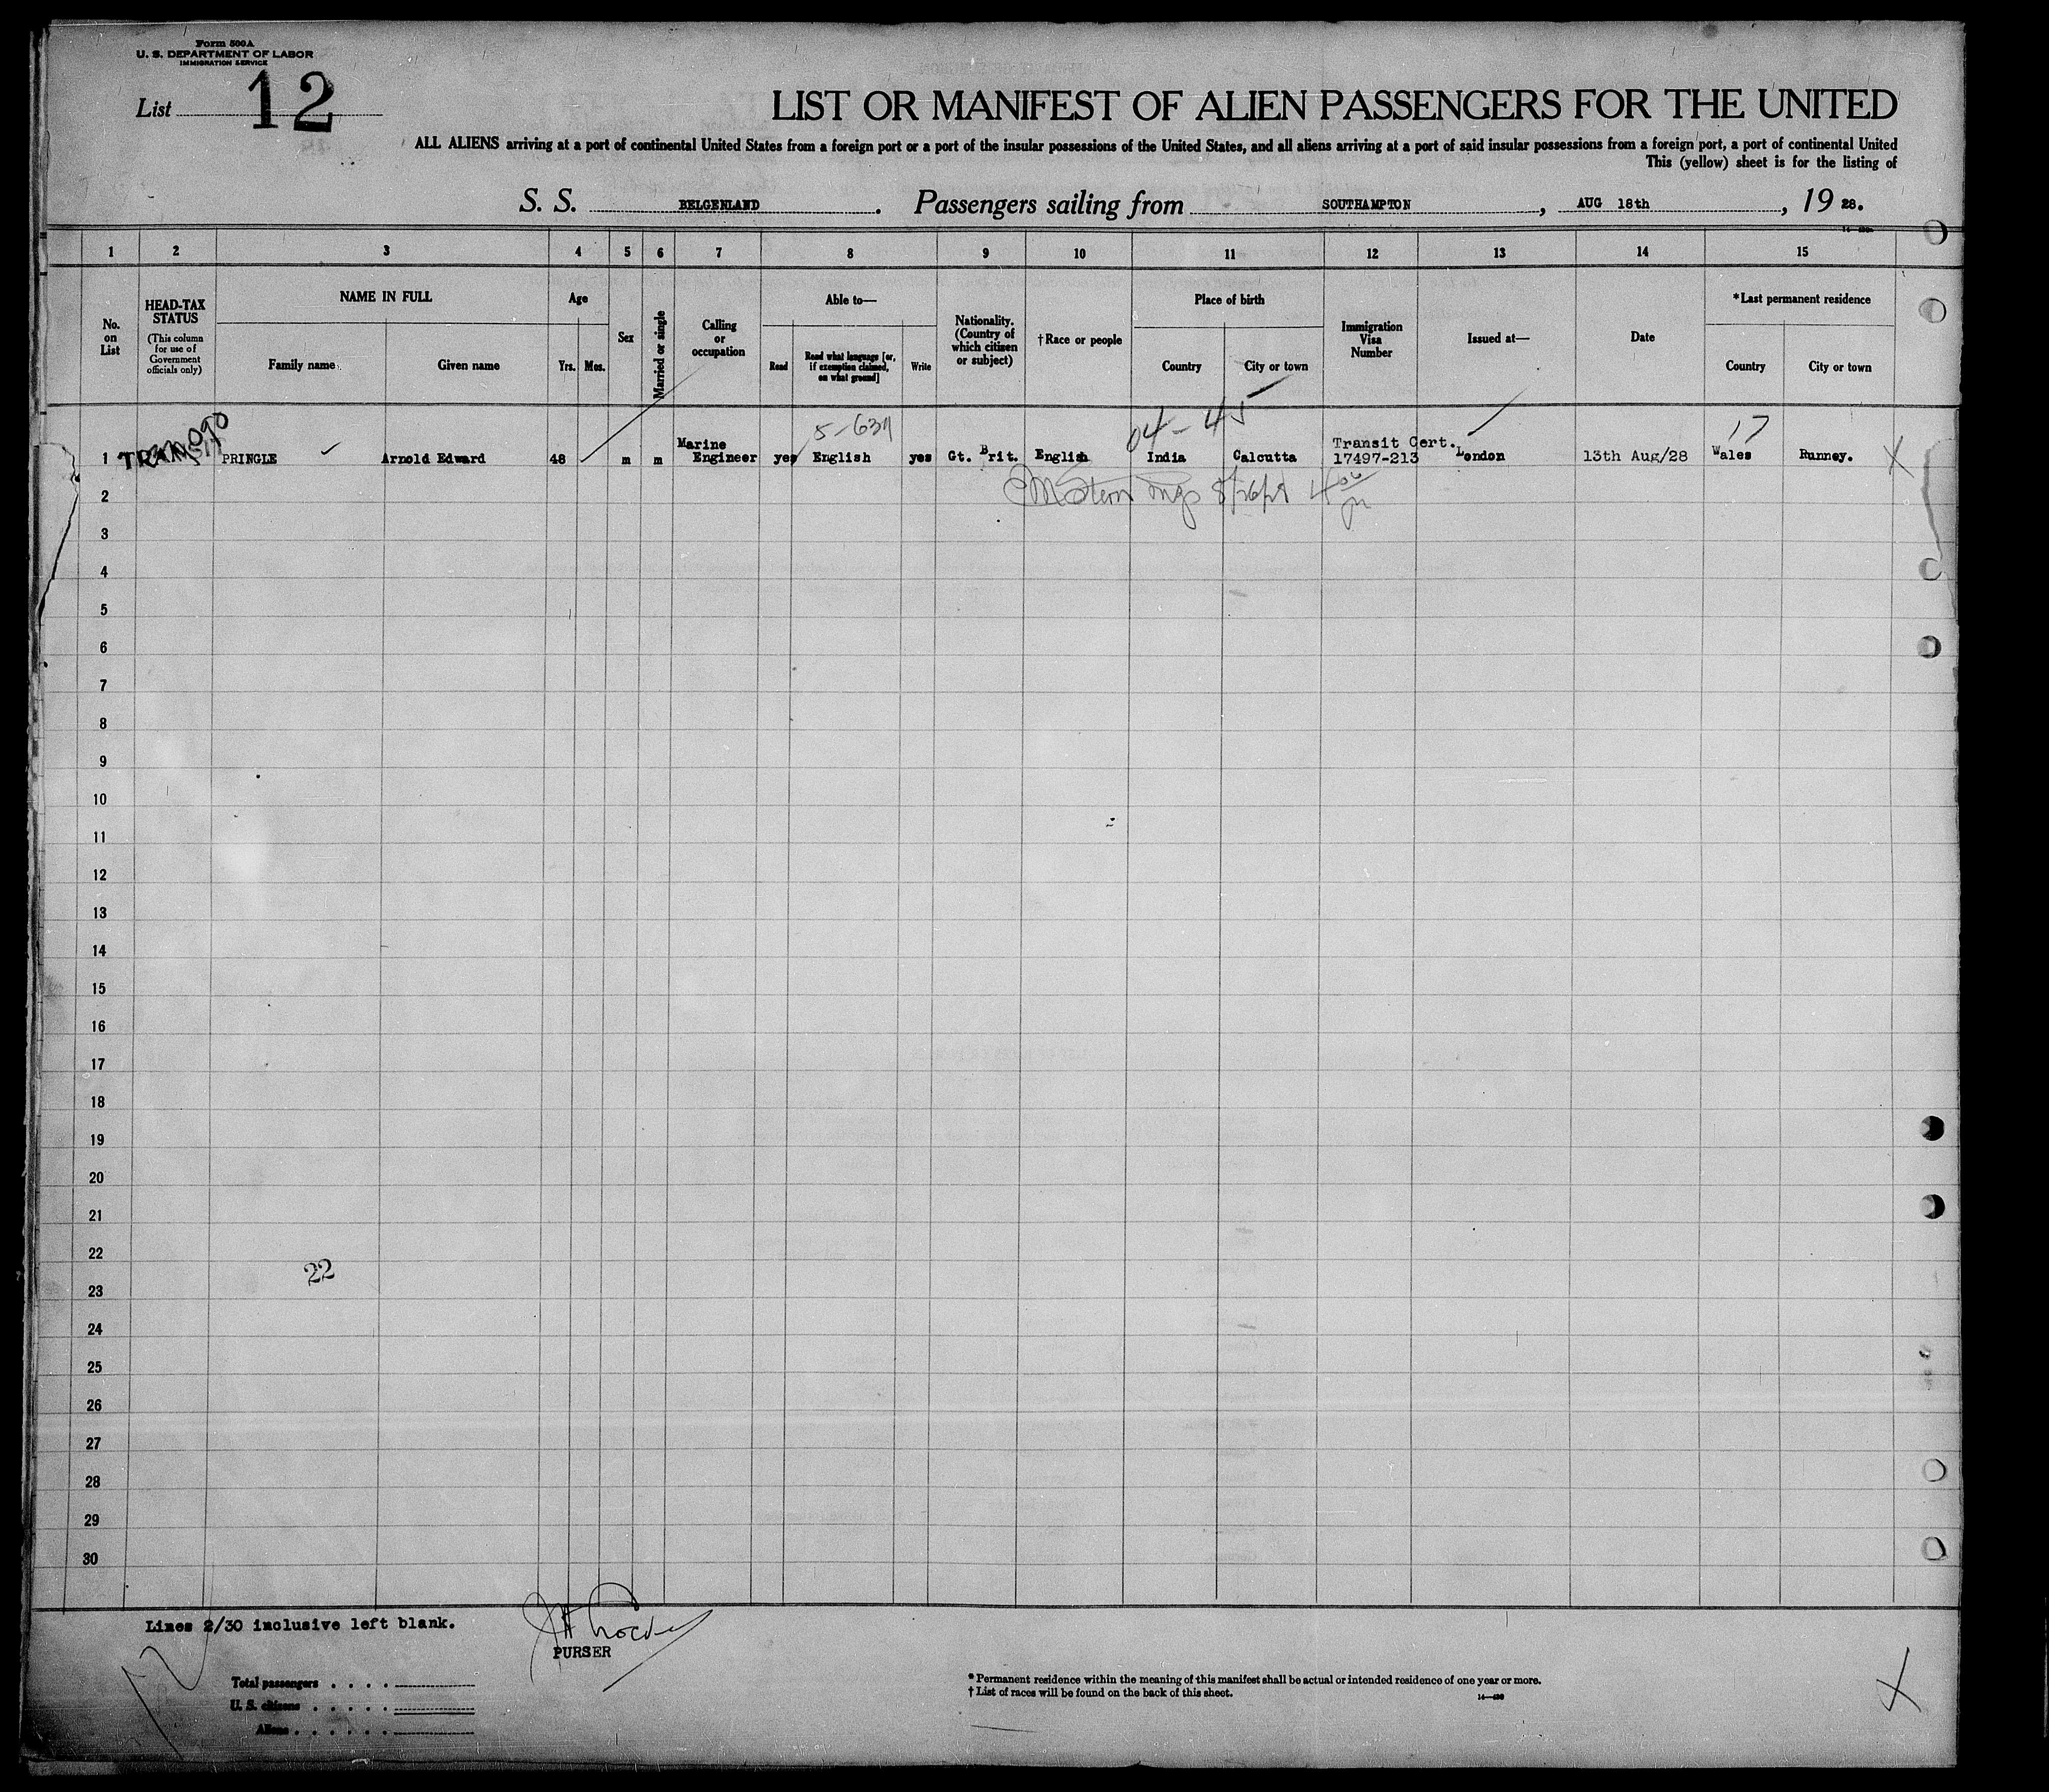 Form 500A
U. S. DEPARTMENT OF LABOR
IMMIGRATION SERVICE
List 12
LIST OR MANIFEST OF ALIEN PASSENGERS FOR THE UNITED
ALL ALIENS arriving at a port of continental United States from a foreign port or a port of the insular possessions of the United States, and all aliens arriving at a port of said insular possessions from a foreign port, a port of continental United
This (yellow) sheet is for the listing of
S. S. BELGENLAND. Passengers sailing from SOUTHAMPTON, AUG 18th, 19 28.
1 2 3 4 5 6 7 8 9 10 11 12 13 14 15
No. on List
HEAD-TAX STATUS
(This column for use of Government officials only)
NAME IN FULL
Family name
Given name
Age
Yrs. Mos.
Sex
Married or single
Calling or occupation
Able to—
Read
Read what language [or, if exemption claimed, on what ground]
Write
Nationality. (Country of which citizen or subject)
†Race or people
Place of birth
Country
City or town
Immigration Visa Number
Issued at—
Date
*Last permanent residence
Country
City or town
5-637
04-45
17
1 PRINGLE Arnold Edward 48 m m Marine Engineer yes English yes Gt. Brit. English India Calcutta Transit Cert. 17497-213 London 13th Aug/28 Wales Runney. X
2
3
4
5
6
7
8
9
10
11
12
13
14
15
16
17
18
19
20
21
22
22
23
24
25
26
27
28
29
30
Lines 2/30 inclusive left blank.
PURSER
Total passengers
U. S. citizens
Aliens
* Permanent residence within the meaning of this manifest shall be actual or intended residence of one year or more.
† List of races will be found on the back of this sheet.
14—480
X